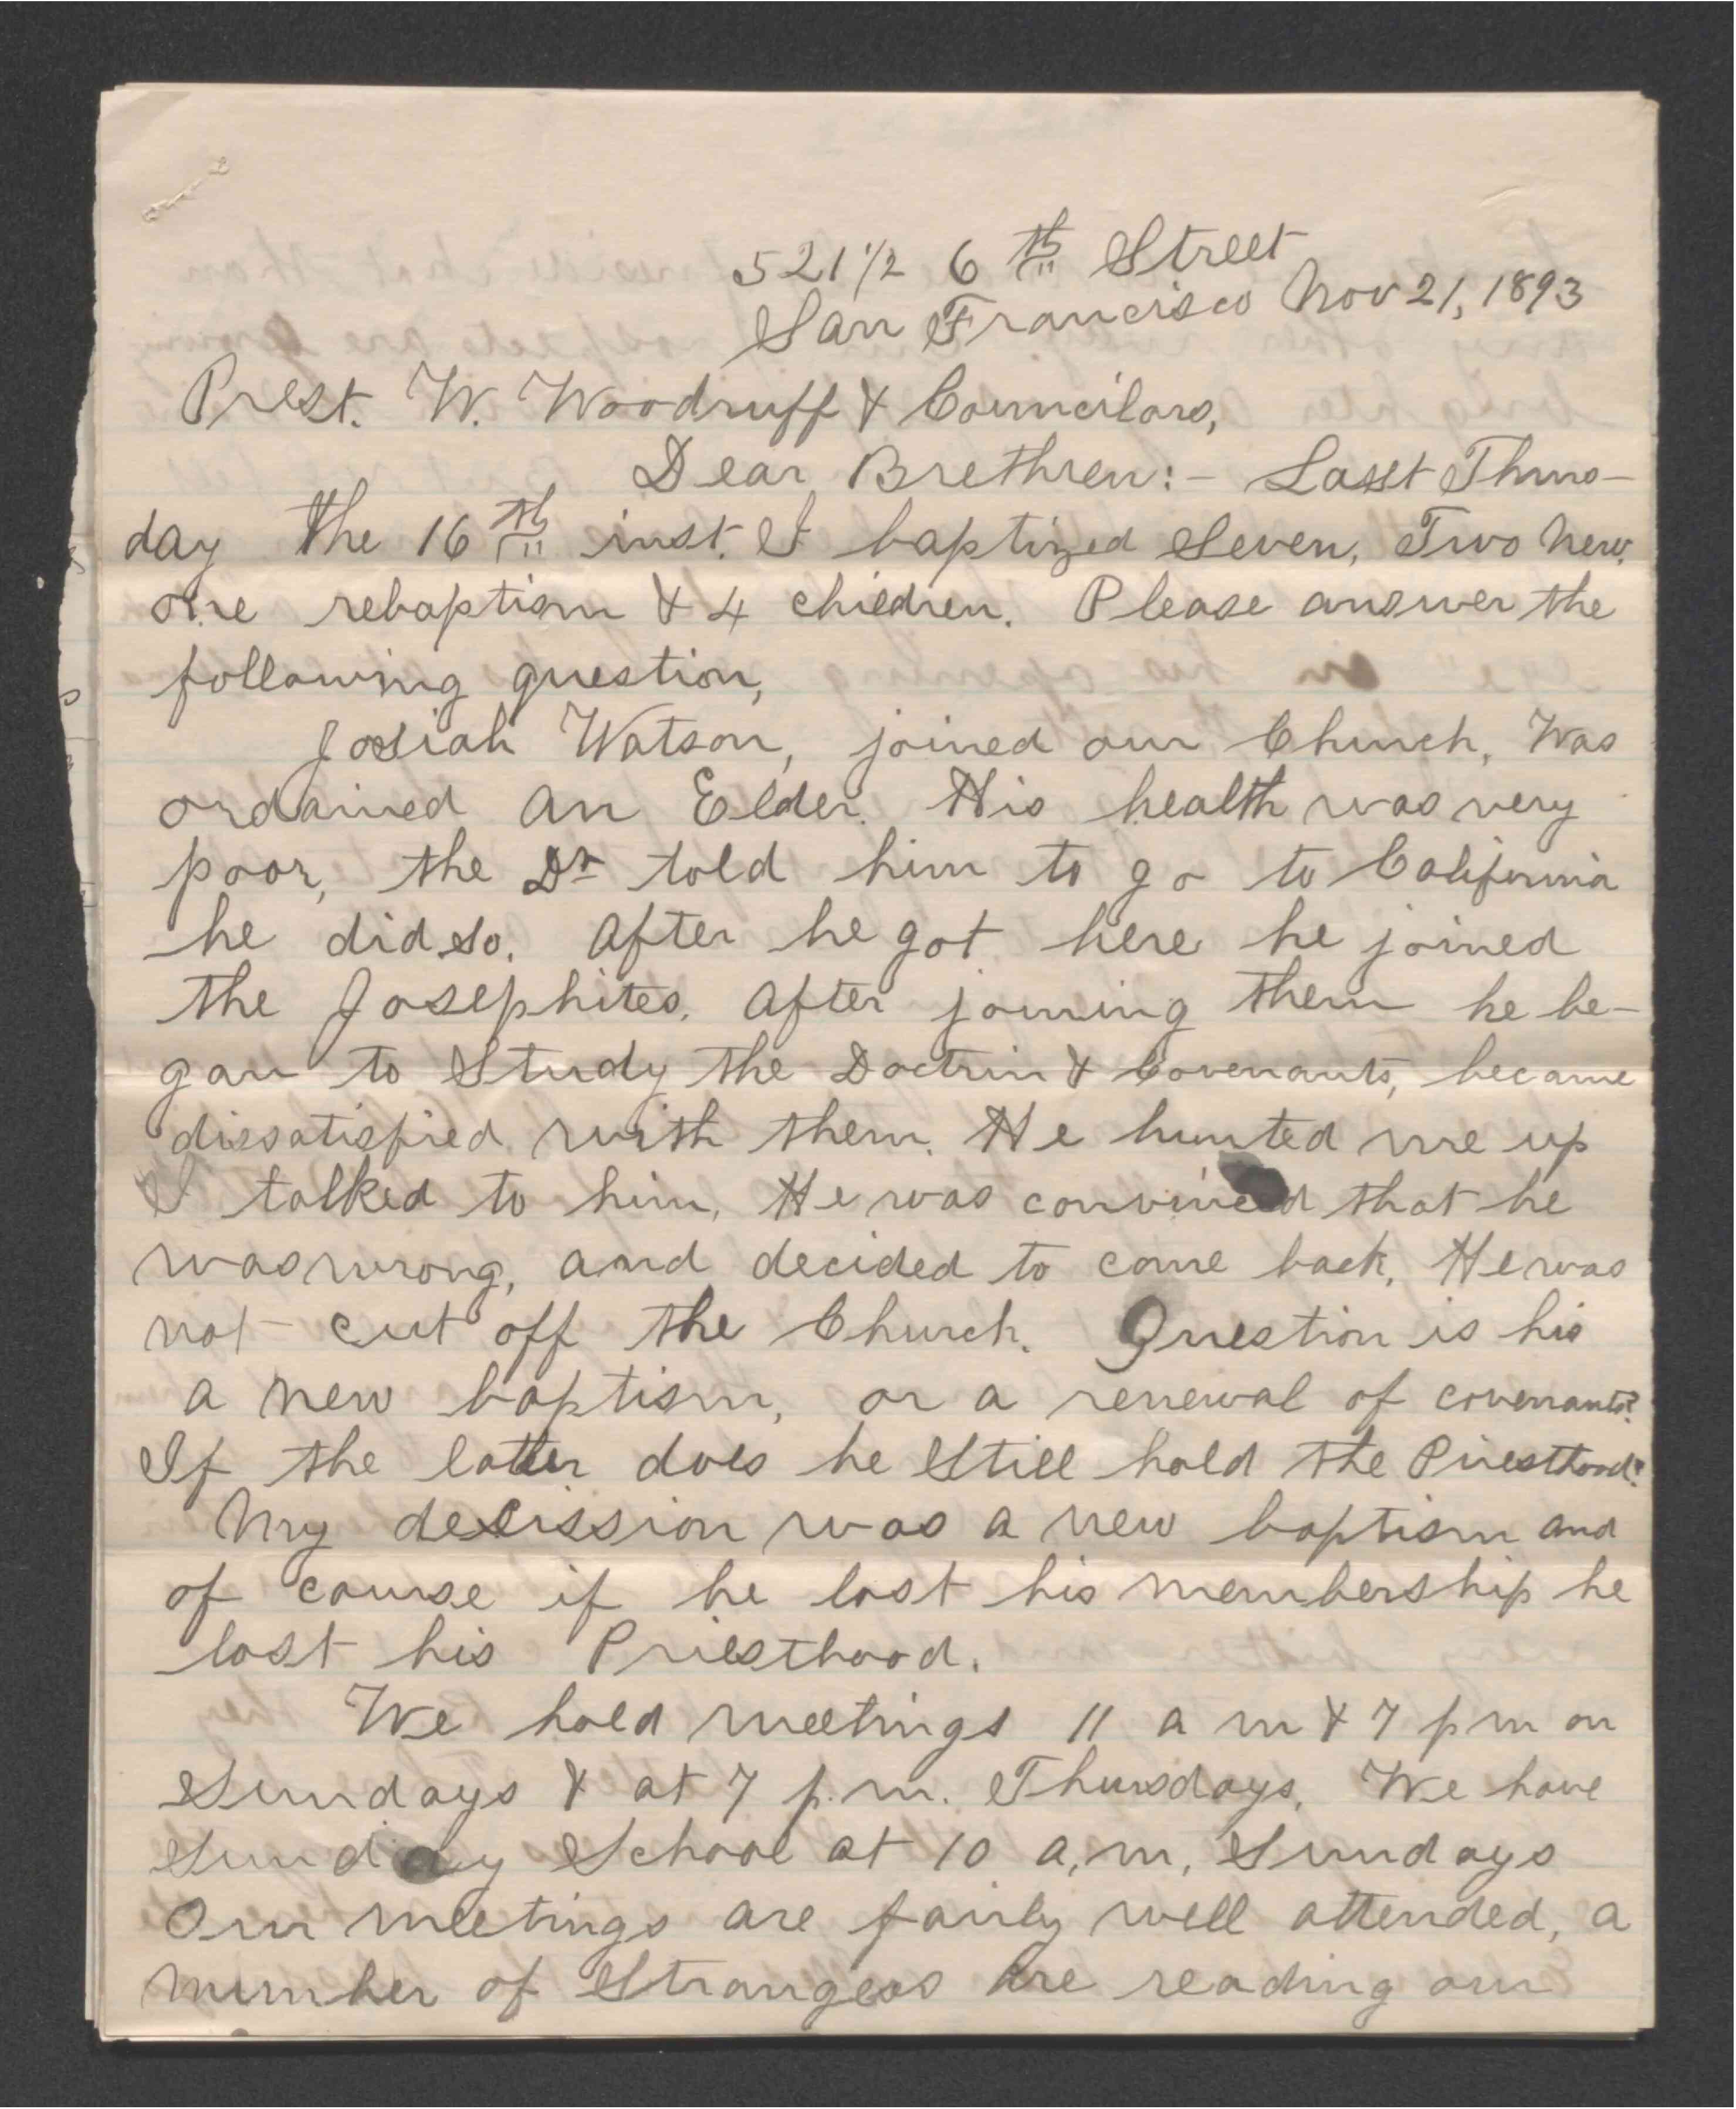 521 1/2 6th Street
San Francisco Nov 21, 1893
Prest. W. Woodruff & Councilors,
Dear Brethren:- Last Thurs-
day the 16th inst. I baptized Seven, Two new,
one rebaptism & 4 children. Please answer the
following question,
Josiah Watson, joined our Church, Was
ordained an Elder. His health was very
poor, the Dr told him to go to California
he did so. After he got here he joined
the Josephites. After joining them he be-
gan to Study the Doctrin & Covenants, became
dissatisfied with them. He hunted me up
I talked to him, He was convinced that he
was wrong, and decided to come back. He was
not cut off the Church. Question is his
a new baptism, or a renewal of covenants?
If the latter does he Still hold the Priesthood?
My decission was a new baptism and
of course if he lost his membership he
lost his Priesthood.
We hold meetings 11 a m & 7 p m on
Sundays & at 7 p.m. Thursdays. We have
Sunday School at 10 a,m, Sundays
Our meetings are fairly well attended, a
number of Strangers are reading our